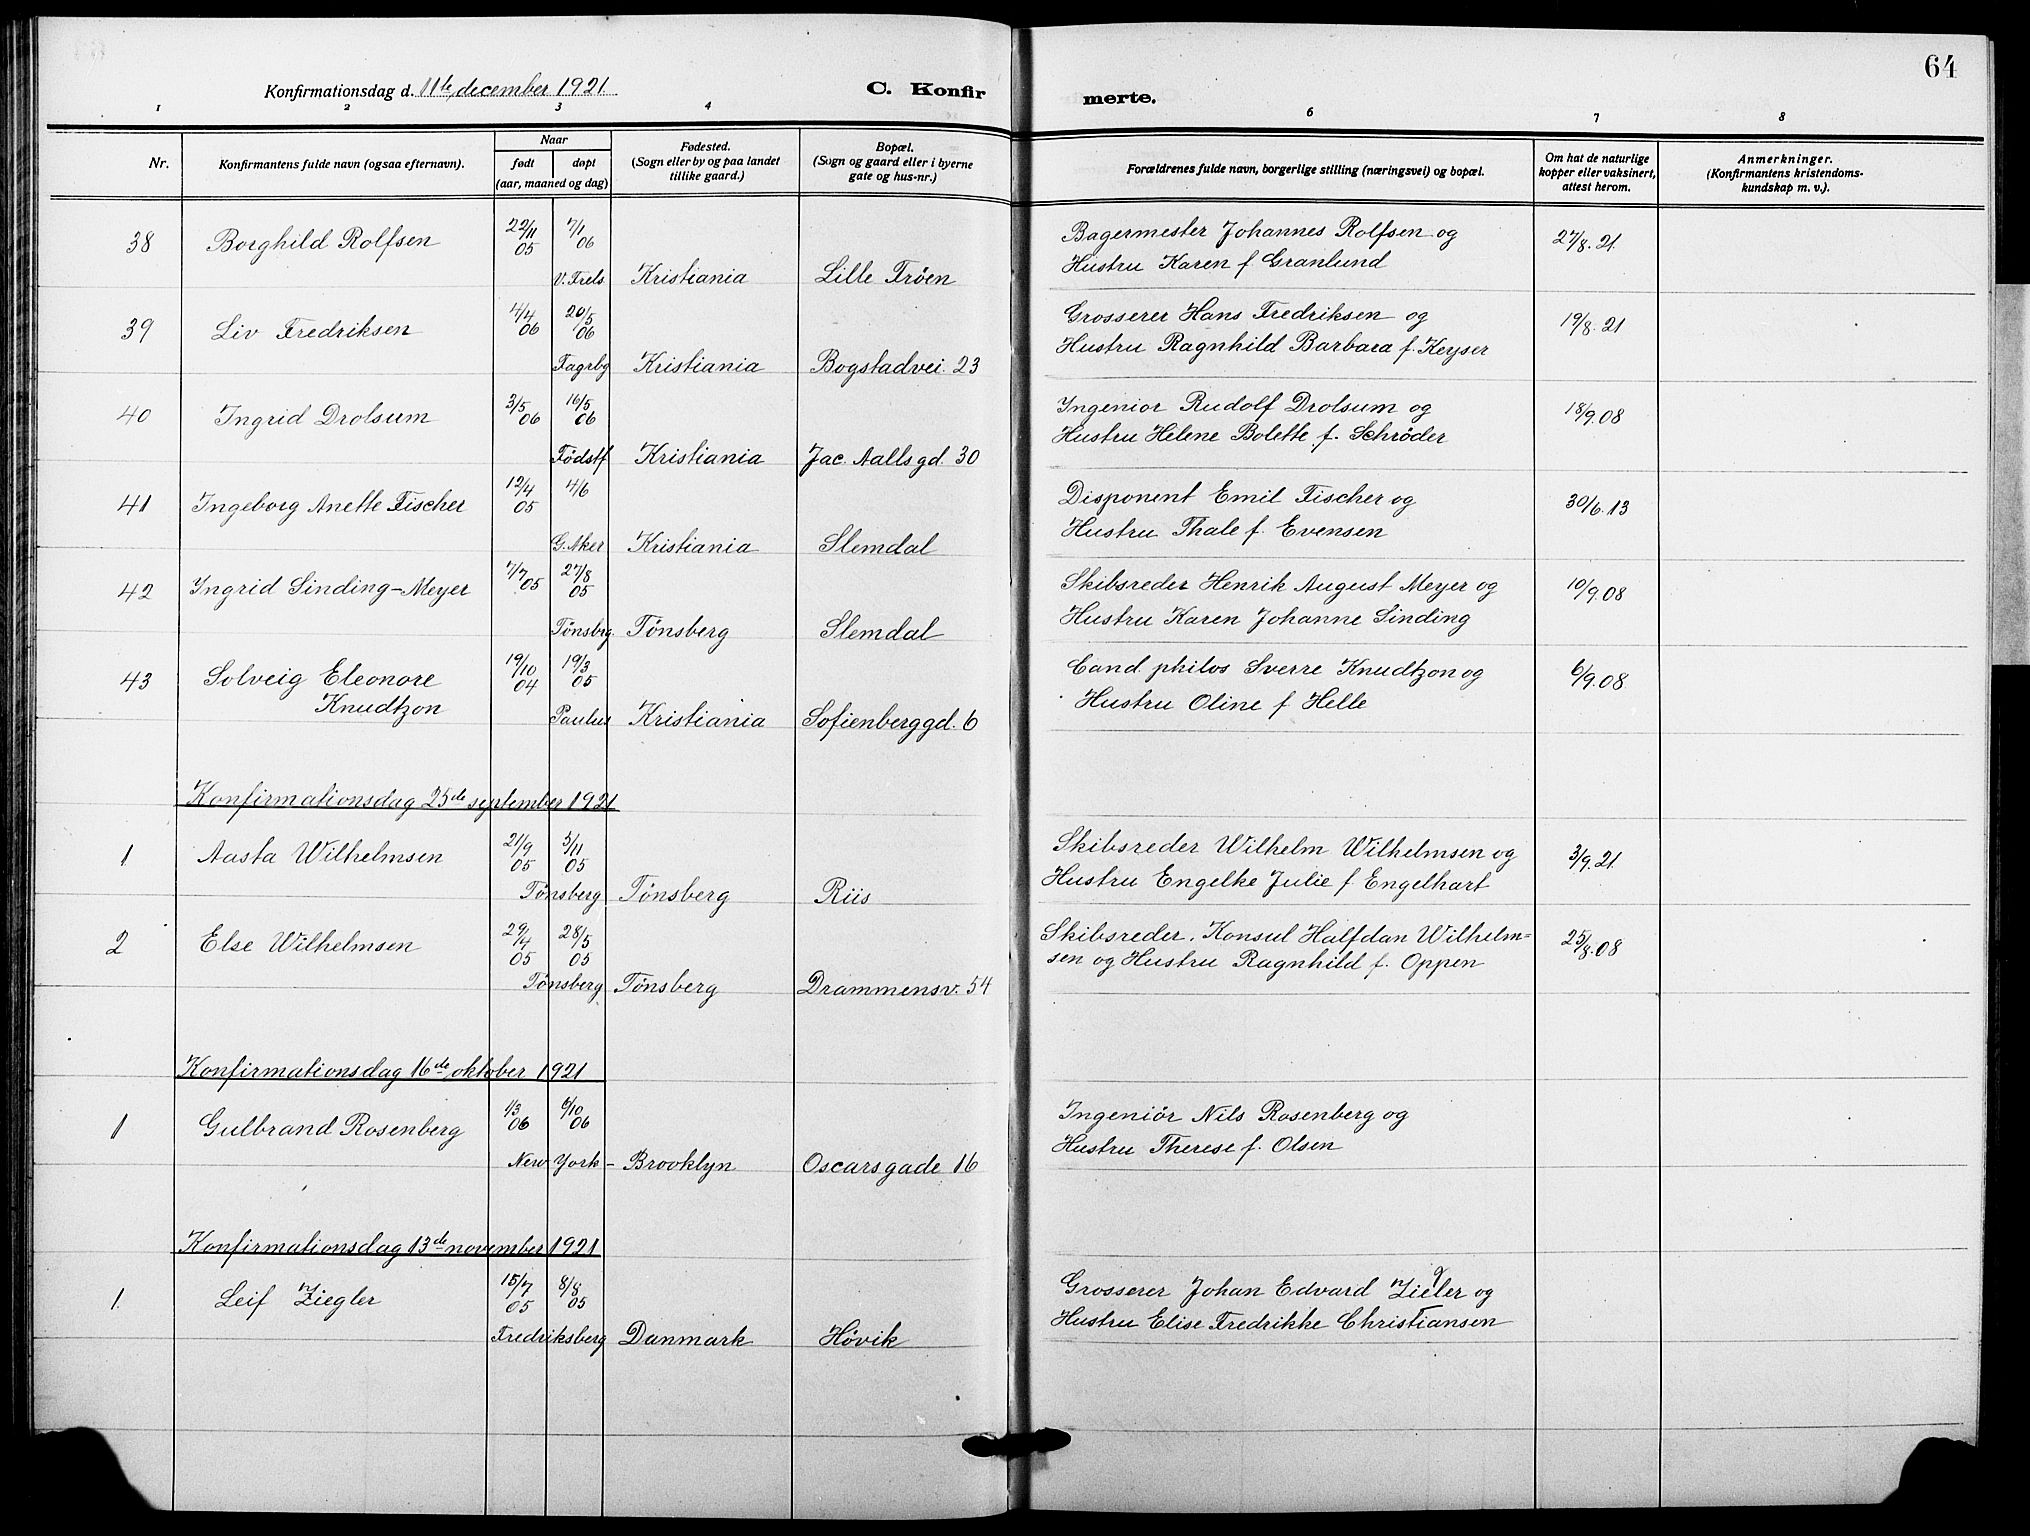 64
Konfirmationsdag d. 11te december 1921. C. Konfir merte.
1 2 3 4 6 7 8
Nr.
Konfirmantens fulde navn (ogsaa efternavn).
Naar
født døpt
(aar, maaned og dag)
Fødested.
(Sogn eller by og paa landet
tillike gaard.)
Bopæl.
(Sogn og gaard eller i byerne
gate og hus-nr.)
Forældrenes fulde navn, borgerlige stilling (næringsvei) og bopæl.
Om hat de naturlige
kopper eller vaksinert,
attest herom.
Anmerkninger.
(Konfirmantens kristendoms-
kundskap m. v.).
38 Borghild Rolfsen 22/11 05 7/1 06 Bagermester Johannes Rolfsen og 27/8. 21.
V. Frels. Kristiania Lille Frøen Hustru Karen f. Granlund
39 Liv Fredriksen 4/4 06 20/5 06 Grosserer Hans Fredriksen og 19/8. 21
Fagrbg Kristiania Bogstadvei. 23 Hustru Ragnhild Barbara f. Keyser
40 Ingrid Drolsum 3/5 06 16/5 06 Ingeniør Rudolf Drolsum og 18/9. 08
Fødstf Kristiania Jac. Aalls gd. 30 Hustru Helene Bolette f. Schrøder
41 Ingeborg Anette Fischer 12/4 05 4/6 Disponent Emil Fischer og 30/6. 13
G. Aker Kristiania Slemdal Hustru Thale f. Evensen
42 Yngrid Sinding-Meyer 7/7 05 27/8 05 Skibsreder Henrik August Meyer og 10/9. 08
Tønsbrg. Tønsberg Slemdal Hustru Karen Johanne Sinding
43 Solveig Eleonore 19/10 04 19/3 05 Cand philos Sverre Knudtzon og 6/9. 08.
Knudtzon Paulus Kristiania Sofienberggd. 6 Hustru Oline f Helle
Konfirmationsdag 25de september 1921
1 Aasta Wilhelmsen 21/9 05 5/11 05 Skibsreder Wilhelm Wilhelmsen og 3/9. 21.
Tønsberg Tønsberg Riis Hustru Engelke Julie f Engelhart
2 Else Wilhelmsen 29/4 05 28/5 05 Skibsreder. Konsul Halfdan Wilhelm= 25/8. 08
Tønsberg Tønsberg Drammensv. 54 sen og Hustru Ragnhild f. Oppen
Konfirmationsdag 16de oktober 1921
1 Gulbrand Rosenberg 1/3 06 6/10 06 Ingeniør Nils Rosenberg og
New York- Brooklyn Oscarsgade 16 Hustru Therese f. Olsen
Konfirmationsdag 13de november 1921
1. Leif Ziegler 15/7 05 8/8 05 Grosserer Johan Edvard Ziegler og
Fredriksberg Danmark Høvik Hustru Elise Fredrikke Christiansen